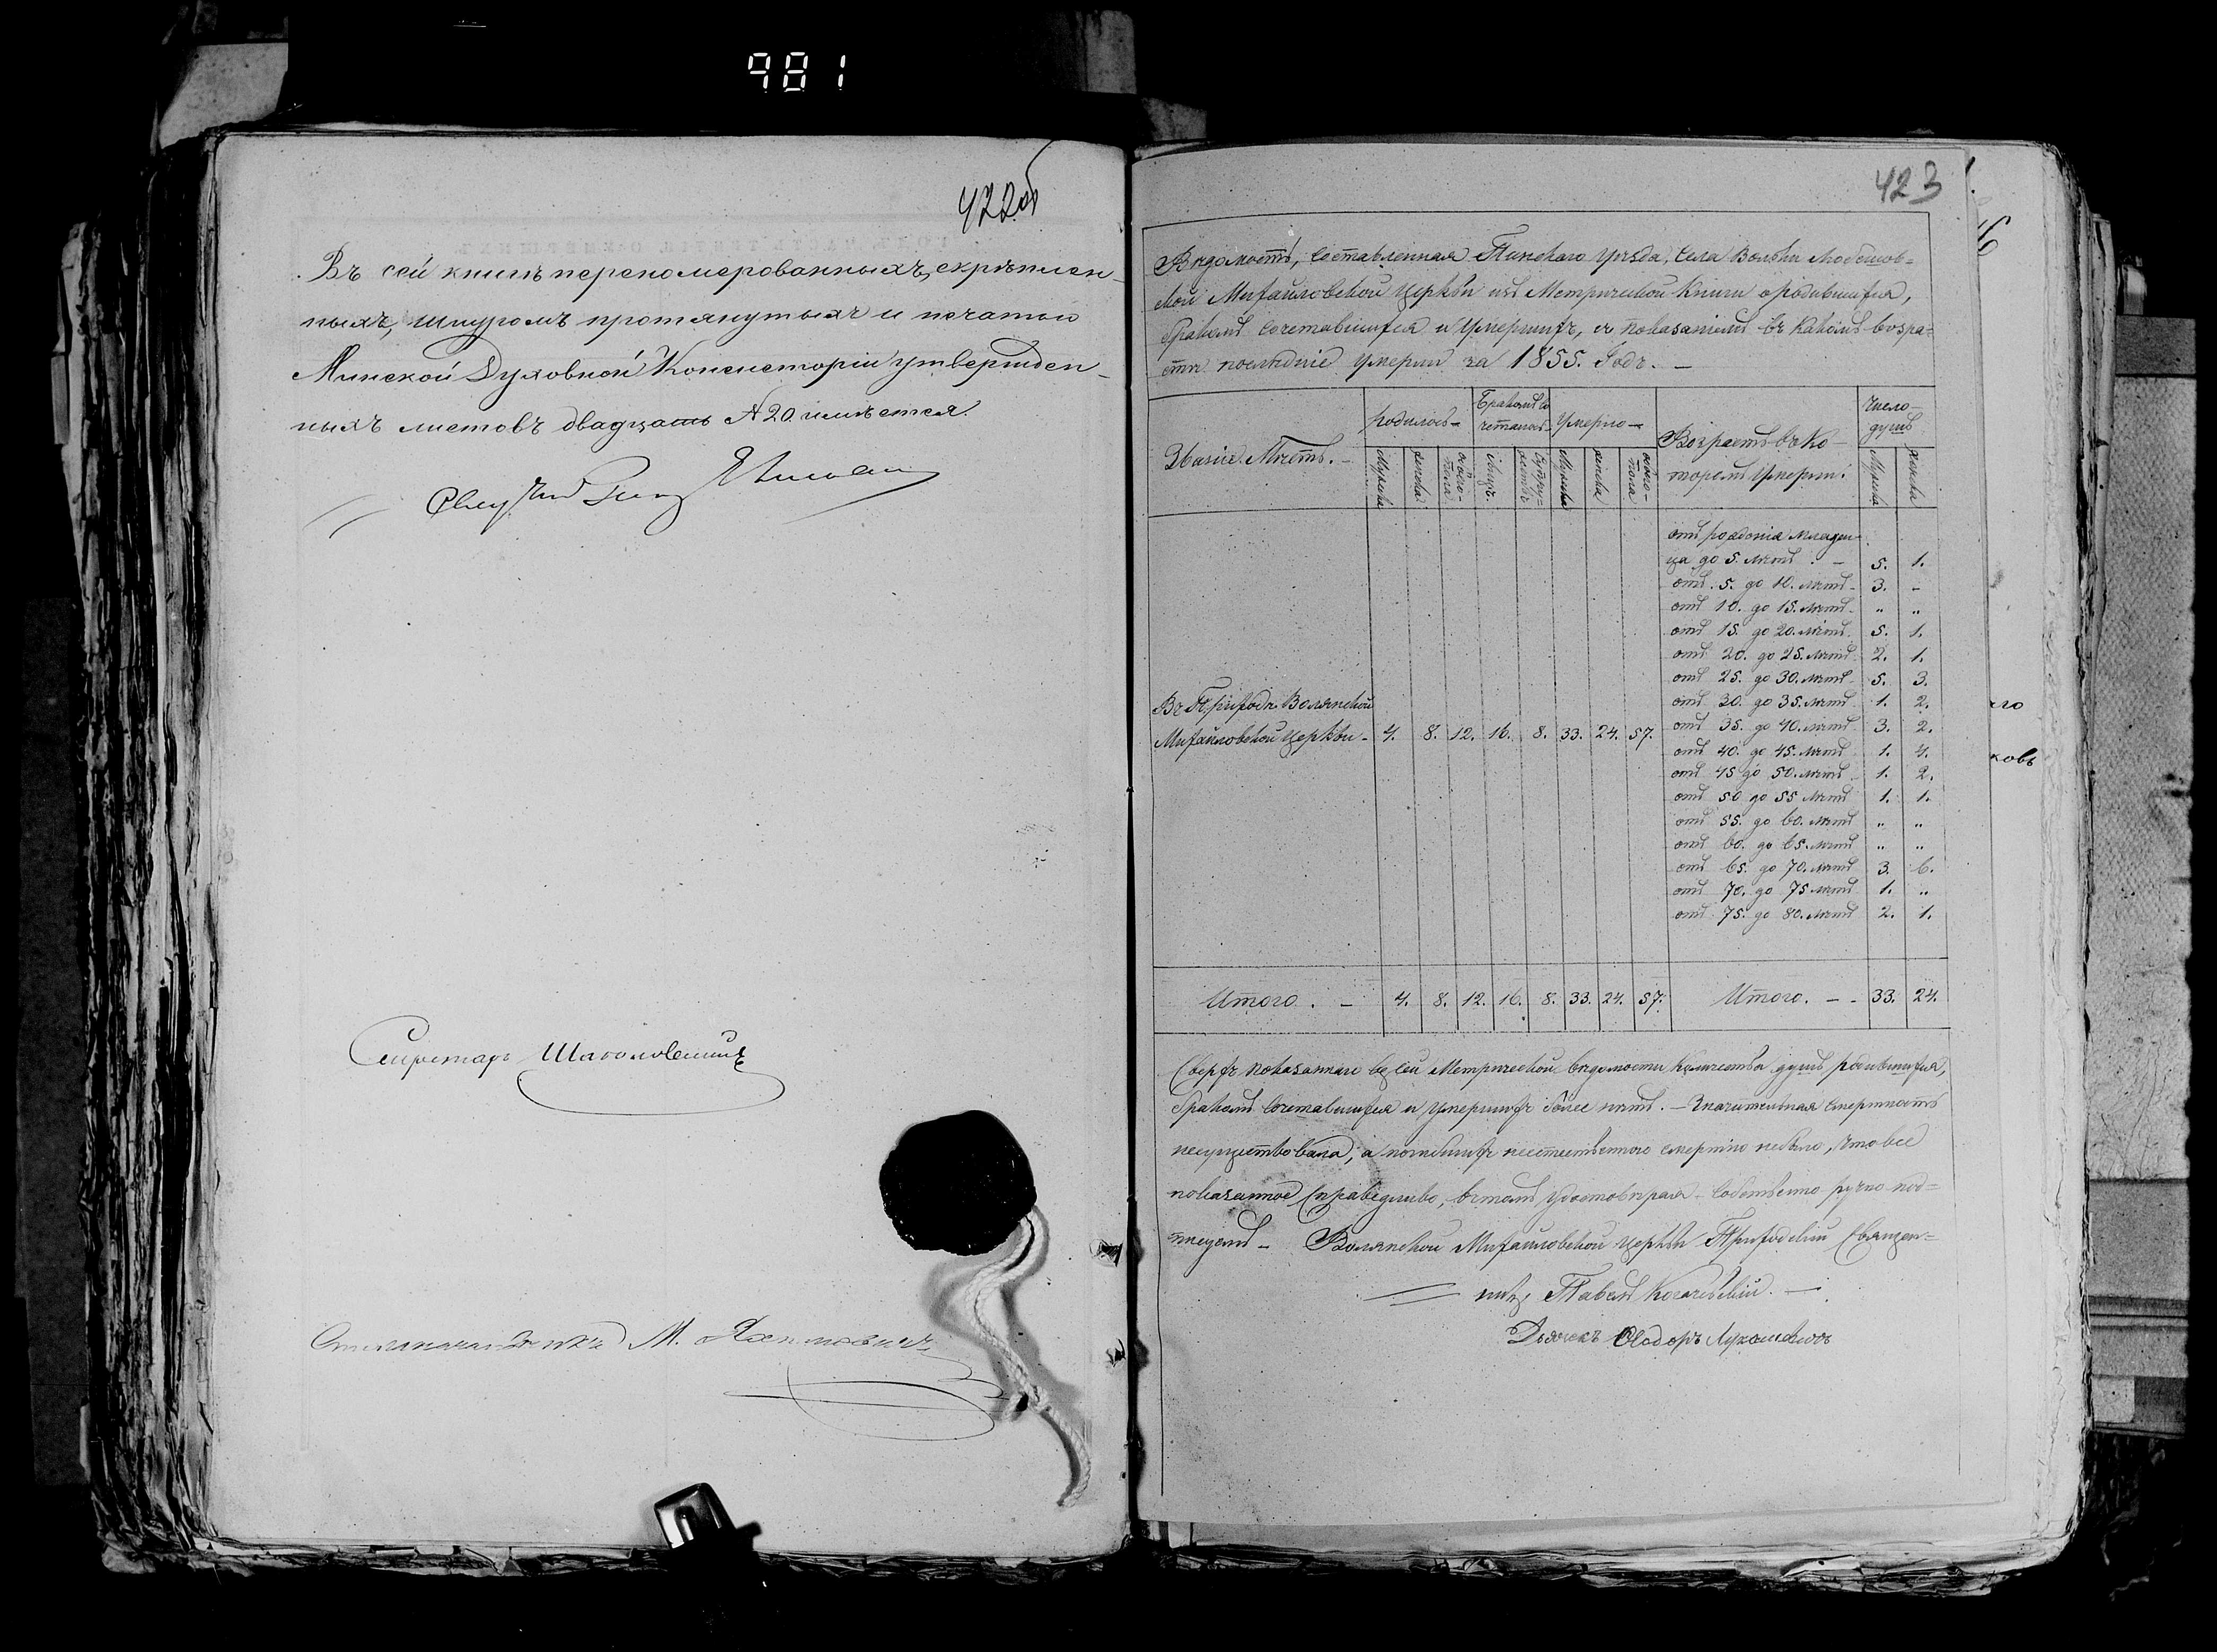 981
422об
Въ сей книгѣ перономерованныхъ, скрѣплен-
ныхъ, шнуромъ протянутыхъ и печатью
Минской Духовной Консисторіи утвержден-
ныхъ листовъ двадцать № 20 имѣется.
Секретарь
М.
423
Вѣдомость, составленная Пинскаго Уѣзда, Села Вольки Любешов-
ской Михайловской Церкви изъ Метрической Книги о родившихся,
бракомъ сочетавшихся и Умершихъ, съ показаніемъ въ какомъ возра-
стѣ послѣдніе умерли за 1855. Годъ. —
Званіе Мѣстъ. —
Родилось —
Бракомъ со
четалось —
Умерло —
Возрастъ въ ко-
торомъ Умерли:
Число
душъ
Мужска
женска
обоего
пола
Лицъ
супру=
жествъ
Мужска
женска
обоего
пола
Мужска
женска
отъ рожденія младен
ца до 5. лѣтъ. — 5. 1.
отъ 5. до 10. лѣтъ - 3. -
отъ 10. до 15. лѣтъ - „ „
отъ 15. до 20. лѣтъ. 5. 1.
отъ 20. до 25. лѣтъ - 2. 1.
отъ 25. до 30. лѣтъ - 5. 3.
отъ 30. до 35. лѣтъ 1. 2.
отъ 35. до 40. лѣтъ 3. 2.
отъ 40. до 45. лѣтъ 1. 4.
отъ 45 до 50. лѣтъ 1. 2.
отъ 50 до 55 лѣтъ 1. 1.
отъ 55. до 60. лѣтъ „ „
отъ 60. до 65. лѣтъ „ „
отъ 65. до 70. лѣтъ 3. 6.
отъ 70. до 75 лѣтъ 1. „
отъ 75. до 80. лѣтъ 2. 1.
Въ Приходѣ Волянской
Михайловской Церкви - 4. 8. 12. 16. 8. 33. 24. 57.
Итого. — 4. 8. 12. 16. 8. 33. 24. 57. Итого. - - 33. 24.
Сверхъ показаннаго въ сей Метрической вѣдомости Количества душъ родившихся,
бракомъ сочетавшихся и умершихъ болѣе нѣтъ. — Значительная смертность
несуществовала, а погибшихъ неестественною смертію небыло, что все
показанное Справедливо, въ томъ удостовѣряя - собственно ручно под=
писуемъ — Волянской Михайловской церкви Приходскій Священ=
никъ Павелъ
Дьячекъ Ѳеодоръ Лукашевичъ
ковъ